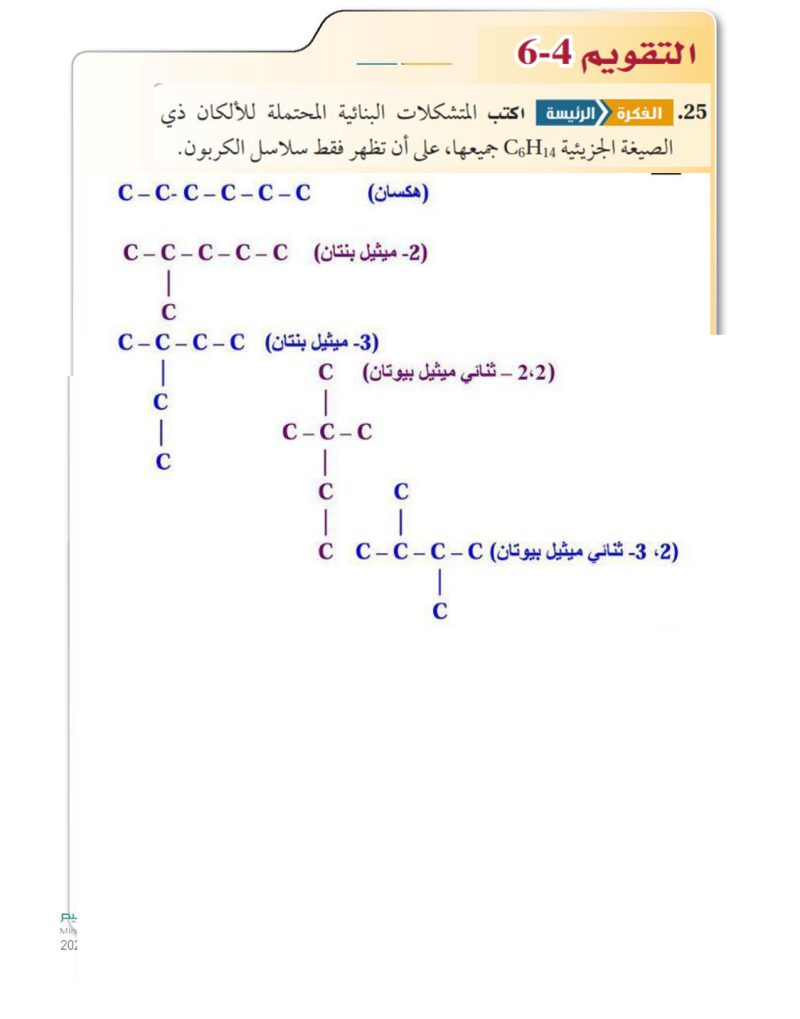 التقويم 4-6
25. الفكرة الرئيسة اكتب المتشكلات البنائية المحتملة للألكان ذي
الصيغة الجزيئية C₆H₁₄ جميعها، على أن تظهر فقط سلاسل الكربون.
C – C- C – C – C – C (هكسان)
C – C – C – C – C (2- ميثيل بنتان)
|
C
C – C – C – C (3- ميثيل بنتان)
|
C
|
C
C (2،2 – ثنائي ميثيل بيوتان)
|
C – C – C
|
C
|
C
C
|
C – C – C – C (2، 3- ثنائي ميثيل بيوتان)
|
C
202